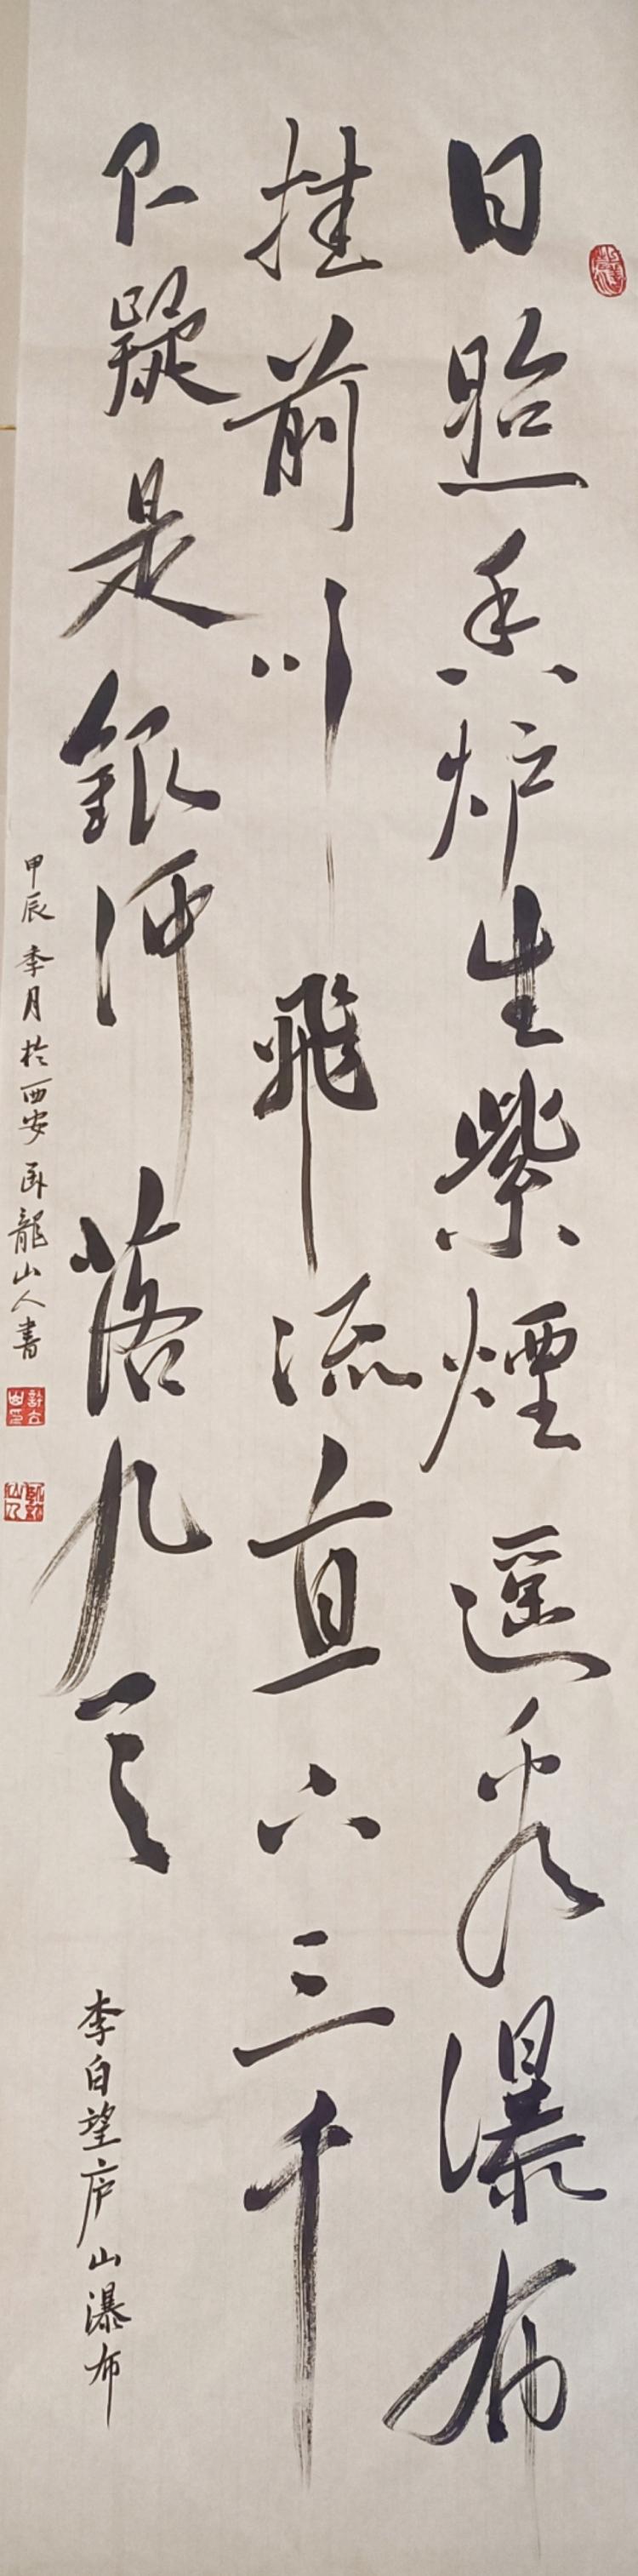 日照香炉生紫煙遥看瀑布
挂前川飛流直下三千
尺疑是銀河落九天
李白望庐山瀑布
甲辰季月於西安卧龍山人書
卧龍山人